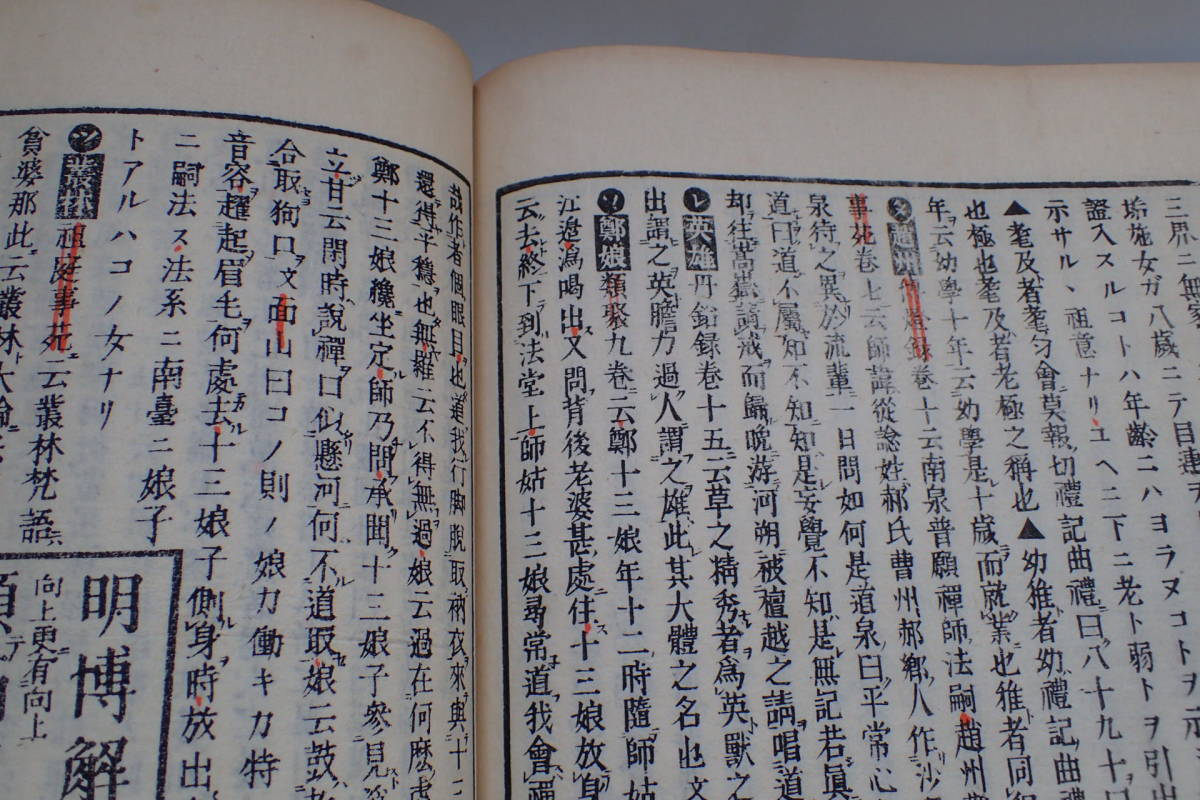 三界ニ無家
垢施女ガ八歲ニテ目連ヲ
證入スルコトハ年齡ニハヨラヌコトヲ示
示サルヽ祖意ナリユヘニ下ニ老ト弱トヲ引出
▲耄及者耄匀會莫報切禮記曲禮曰八十九十曰
也極也耄及者老極之稱也▲幼稚者幼禮記曲禮
年云幼學十年云幼學是十歲而就業也稚者同幼
タ趙州傳燈錄卷十云南泉普願禪師法嗣趙州
事苑卷七云師諱從諗姓郝氏曹州郝鄉人作沙
泉待之異於流輩一日問如何是道泉曰平常心
道曰道不屬知不知知是妄覺不知是無記若眞
却往嵩嶽請戒而歸晩游河朔被檀越之請唱道
レ英雄丹鉛録卷十五云草之精秀者爲英獸之
出謂之英膽力過人謂之雄此其大體之名也文
ソ鄭娘類聚九卷云鄭十三娘年十二時隨師姑
江邊潙喝出又問背後老婆甚處住十三娘放身
云去終下到法堂上師姑十三娘尋常道我會禪
哉作者個眼目也道我行脚脫取衲衣來與十三
還得平穩也無羅云不得無過娘云過在何麼處
鄭十三娘纔坐定師乃問承聞十三娘子參見
立甘云閑時說禪口似懸河何不道取娘云鼓
合取狗口文面山曰コノ則ノ娘力働キカ特
音容趯起眉毛何處去十三娘子側身時放出
ニ嗣法ス法系ニ南臺ニ娘子
トアルハコノ女ナリ
ツ叢林祖庭事苑云叢林梵語
貧婆那此云叢林大論云
明博解
向上更有向上